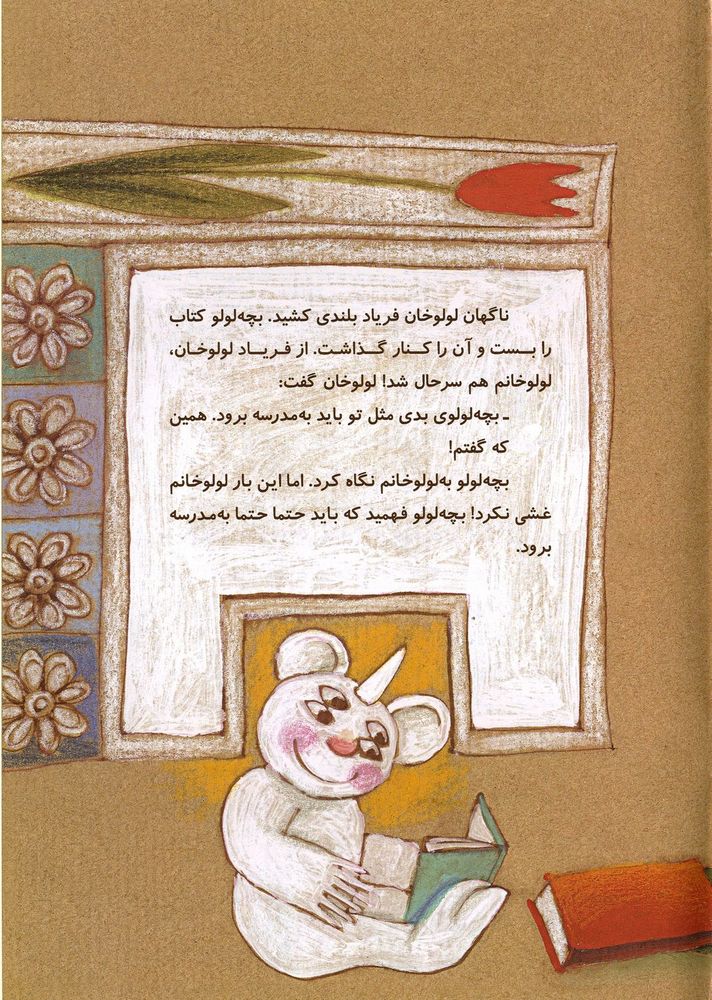 ناگهان لولوخان فریاد بلندی کشید. بچه‌لولو کتاب
را بست و آن را کنار گذاشت. از فریاد لولوخان،
لولوخانم هم سرحال شد! لولوخان گفت:
ـ بچه‌لولوی بدی مثل تو باید به‌مدرسه برود. همین
که گفتم!
بچه‌لولو به‌لولوخانم نگاه کرد. اما این بار لولوخانم
غشی نکرد! بچه‌لولو فهمید که باید حتما حتما به‌مدرسه
برود.